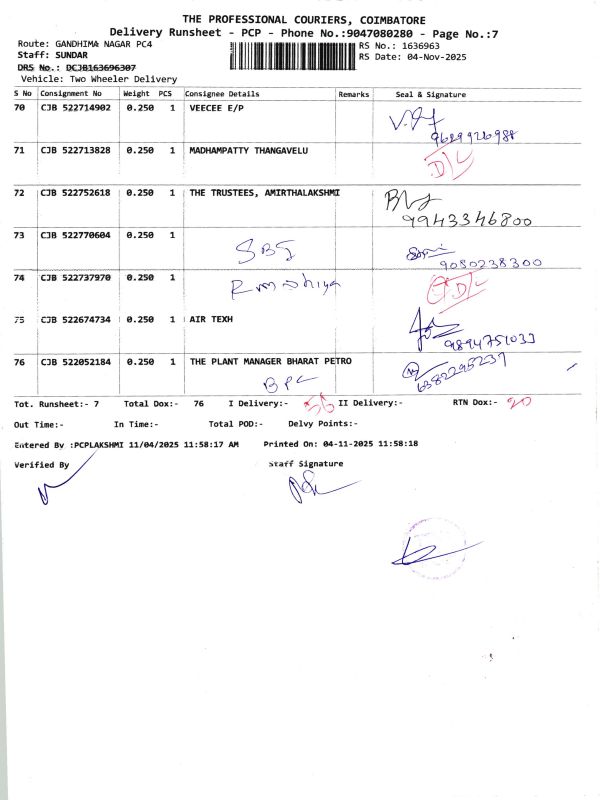 THE PROFESSIONAL COURIERS, COIMBATORE
Delivery Runsheet - PCP - Phone No.:9047080280 - Page No.:7
Route: GANDHIMA NAGAR PC4
RS No.: 1636963
Staff: SUNDAR
RS Date: 04-Nov-2025
DRS No.: DCJB163696307
Vehicle: Two Wheeler Delivery
S No Consignment No Weight PCS Consignee Details Remarks Seal & Signature
70 CJB 522714902 0.250 1 VEECEE E/P
71 CJB 522713828 0.250 1 MADHAMPATTY THANGAVELU D/L
72 CJB 522752618 0.250 1 THE TRUSTEES, AMIRTHALAKSHMI
9943346800
73 CJB 522770604 0.250 1
SBI
9080238300
74 CJB 522737970 0.250 1 D/L
75 CJB 522674734 0.250 1 AIR TEXH
9894751033
76 CJB 522052184 0.250 1 THE PLANT MANAGER BHARAT PETRO
6382295237
BPC
Tot. Runsheet:- 7 Total Dox:- 76 I Delivery:- 56 II Delivery:- RTN Dox:- 20
Out Time:- In Time:- Total POD:- Delvy Points:-
Entered By :PCPLAKSHMI 11/04/2025 11:58:17 AM Printed On: 04-11-2025 11:58:18
Verified By Staff Signature